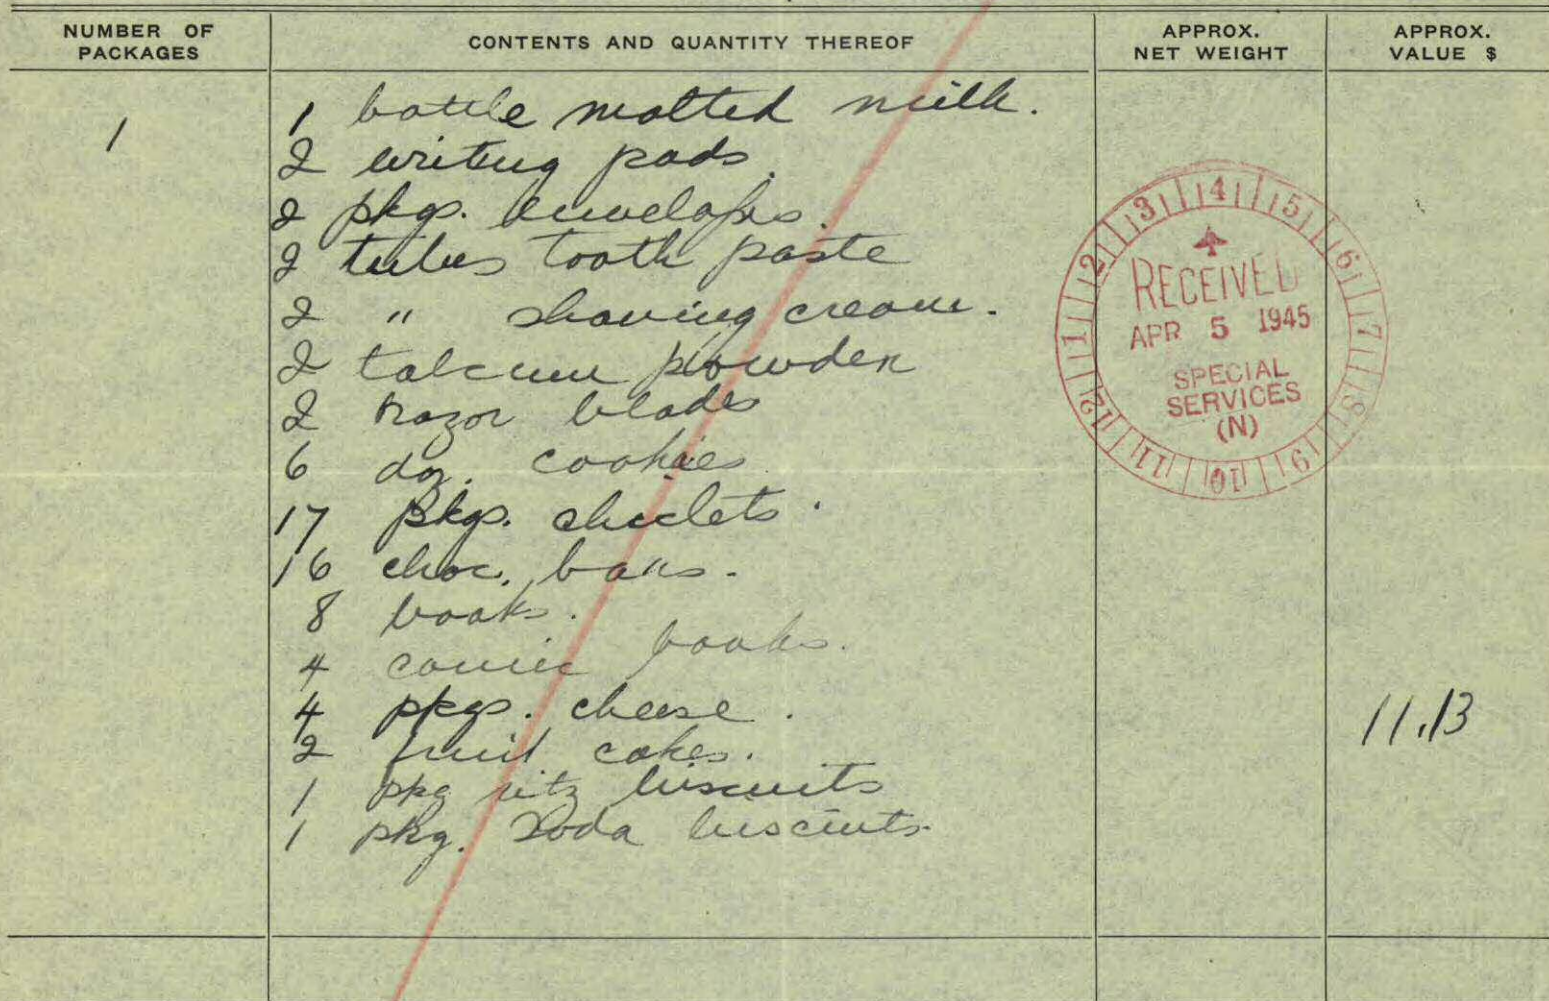 NUMBER OF PACKAGES
CONTENTS AND QUANTITY THEREOF
APPROX. NET WEIGHT
APPROX. VALUE $
1
1 bottle malted milk.
2 writing pads.
2 pkgs. envelopes.
2 tubes tooth paste
2 " shaving cream.
2 talcum powder
2 razor blades
6 doz. cookies
17 pkgs. chiclets.
16 choc. bars.
8 books.
4 comic books.
4 pkgs. cheese.
2 fruit cakes.
1 pkg ritz biscuits
1 pkg. Soda biscuits.
11.13
1 2 3 4 5 6 7 8 9 10 11 12
RECEIVED
APR 5 1945
SPECIAL
SERVICES
(N)